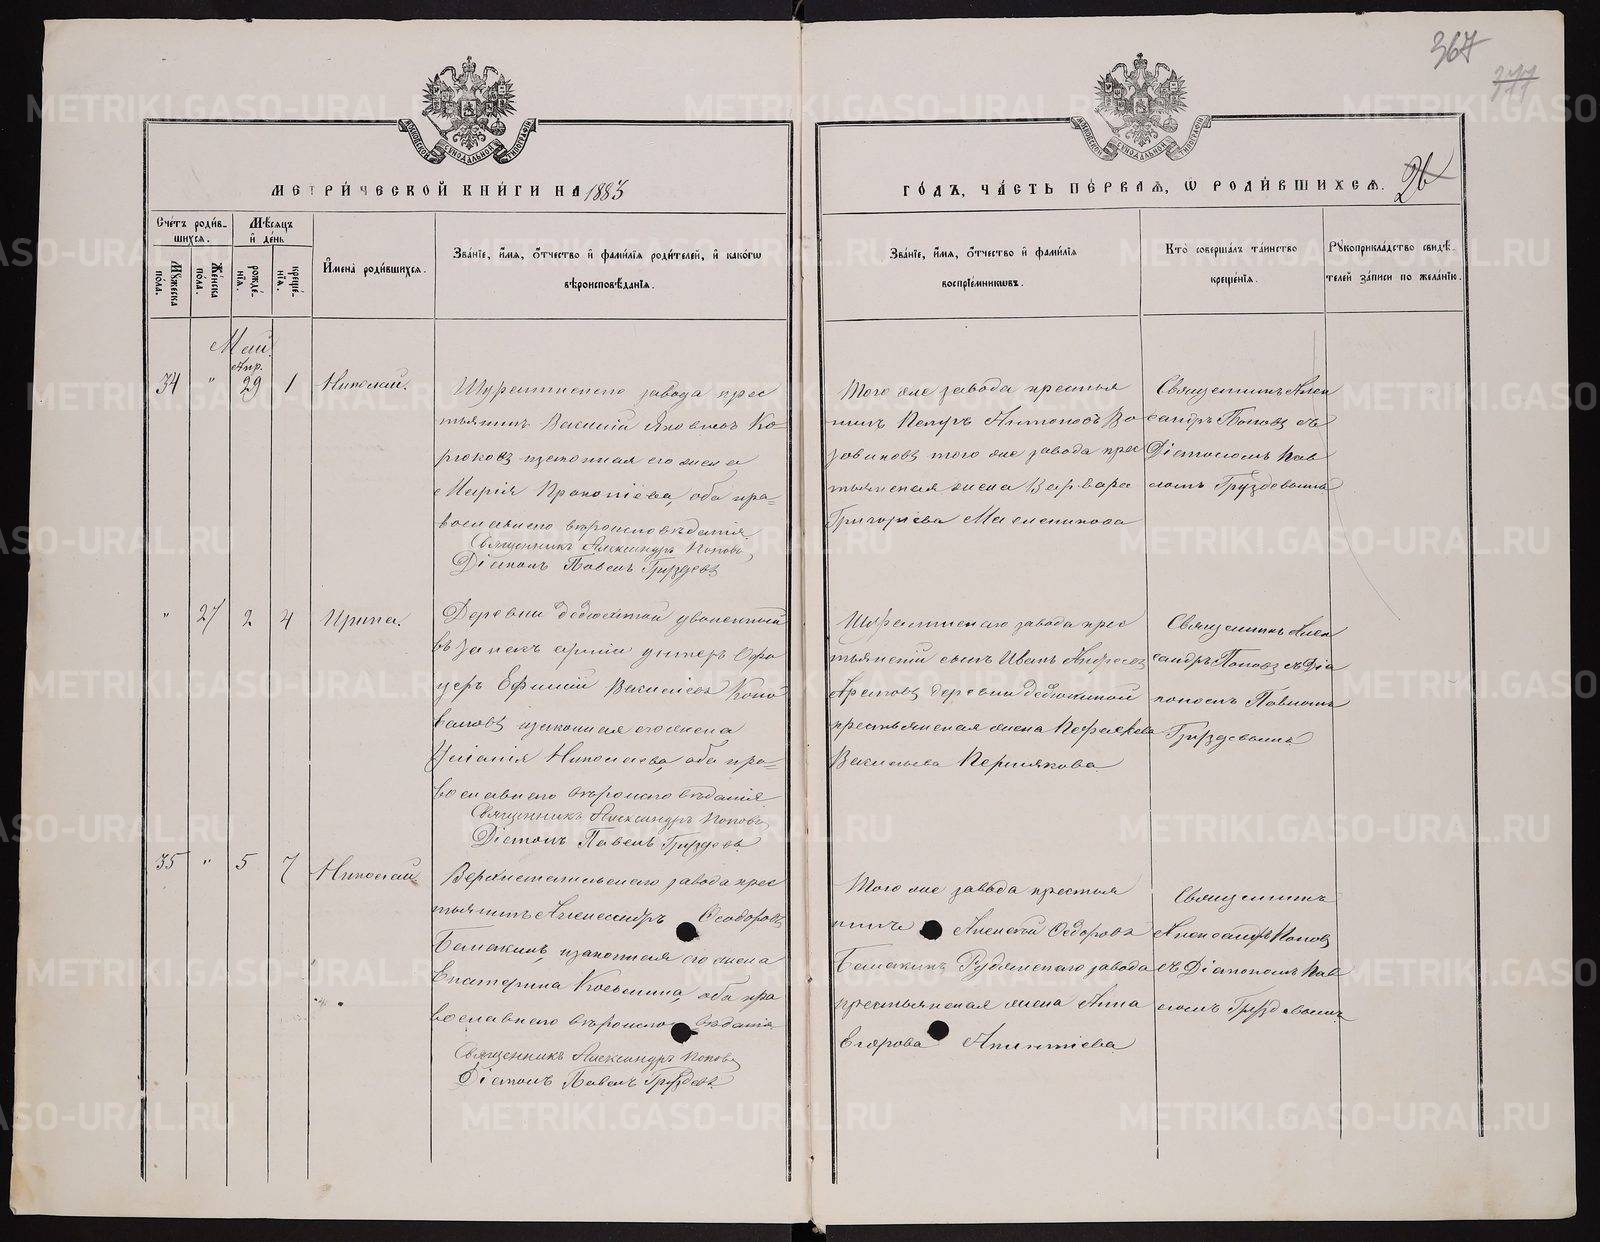 367
777
МОСКОВСКОЙ СѴНОДАЛЬНОЙ ТИПОГРАФІИ
МОСКОВСКОЙ СѴНОДАЛЬНОЙ ТИПОГРАФІИ
МЕТРИ́ЧЕСКОЙ КНИ́ГИ НА 1883
ГО́ДЪ, ЧА́СТЬ ПЕ́РВАЯ, Ѡ РОДИ́ВШИХСЯ. 26
Счетъ роди́в-
шихся.
Мꙋжеска по́ла.
Же́нска по́ла.
Мѣсяцъ
и де́нь
рожде́нїя.
креще́нїя.
И҆мена̀ роди́вшихся.
Зва́нїе, и҆́мя, ѻ҆́тчество и҆ фами́лїя роди́телей, и҆ како́гѡ
вѣроисповѣ́данїя.
Зва́нїе, и҆́мя, ѻ҆́тчество и҆ фами́лїя
воспрїе́мникѡвъ.
Кто̀ соверша́лъ та́инство
креще́нїя.
Рꙋкоприкла́дство свидѣ́-
телей за́писи по жела́нїю.
Май.
Апр.
34 " 29 1 Николай.
заво́да крес
тьянинъ Василій Яковлевъ Ко-
рюковъ и законная его жена
Марія Прокопіева, оба пра-
вославнаго вѣроисповѣданія.
Священникъ Александръ Поповъ,
Діаконъ Павелъ Груздевъ
Того же завода крестья
нинъ Петръ Антоновъ
того же завода крес
тьянская жена Варвара
Григорьева Масленикова
Священникъ Алек
сандръ Поповъ съ
Діакономъ Пав
ломъ Груздевымъ
" 27 2 4 Ирина.
Деревни уволенный
въ запасъ арміи унтеръ Офи
церъ Ефимій Васильевъ Коно
валовъ и законная его жена
Николаева, оба пра-
вославнаго вѣроисповѣданія
Священникъ Александръ Поповъ,
Діаконъ Павелъ Груздевъ
завода крес
тьянскій сынъ Иванъ Андреевъ
деревни
крестьянская жена
Васильева Пермякова
Священникъ Алек
сандръ Поповъ съ Діа
кономъ Павломъ
Груздевымъ
35 " 5 7 Николай
Верхнетагильскаго завода крес
тьянинъ Александръ Ѳеодоровъ
Балакинъ, и законная его жена
Екатерина Козьмина, оба пра
вославнаго вѣроисповѣданія
Священникъ Александръ Поповъ
Діаконъ Павелъ Груздевъ
Того же завода крестья
нинъ Алексѣй Ѳедоровъ
Балакинъ Рудянскаго завода
крестьянская жена Анна
Егорова
Священникъ
Александръ Поповъ
съ Діакономъ Пав
ломъ Груздевымъ
METRIKI.GASO-URAL.RU